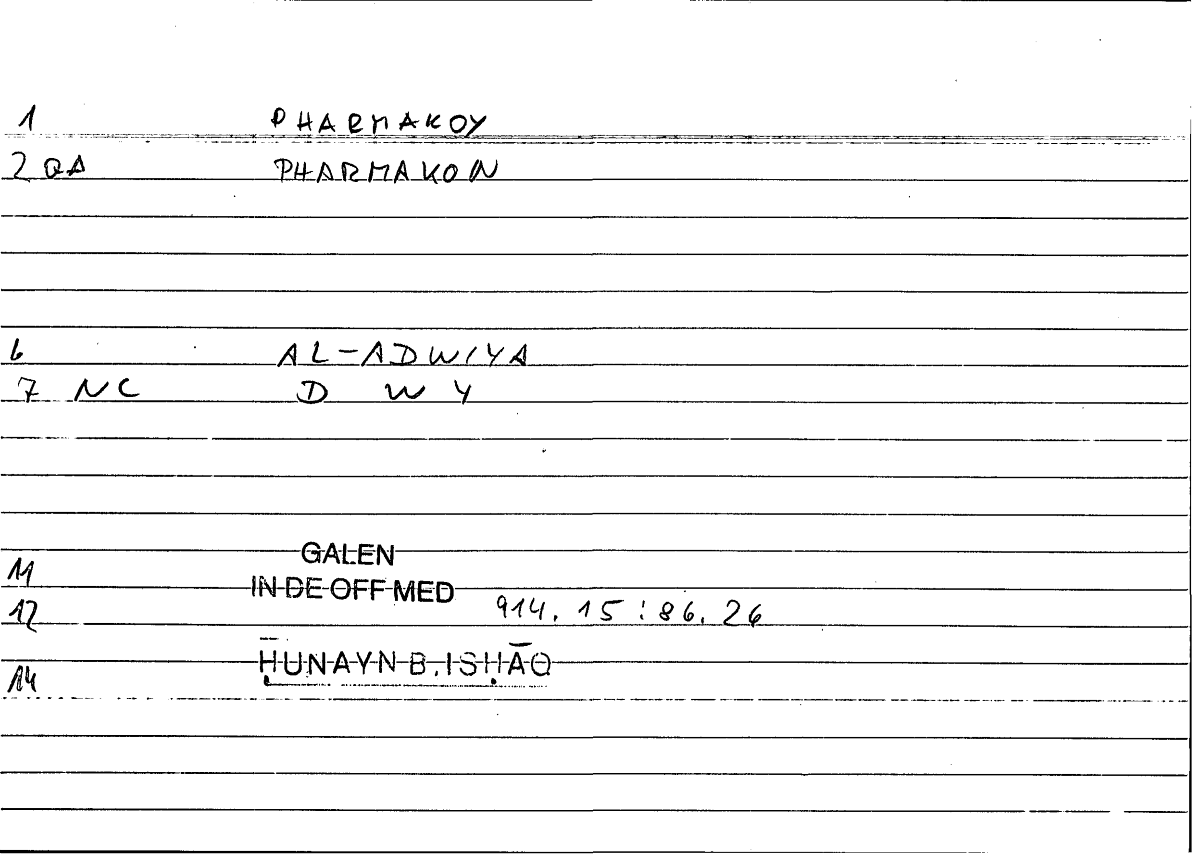 1 PHARMAKOY
2 QA PHARMAKON
6 AL-ADWIYA
7 NC D W Y
11 GALEN
IN DE OFF MED
12 914. 15 : 86. 26
14 ḤUNAYN B. ISḤĀQ